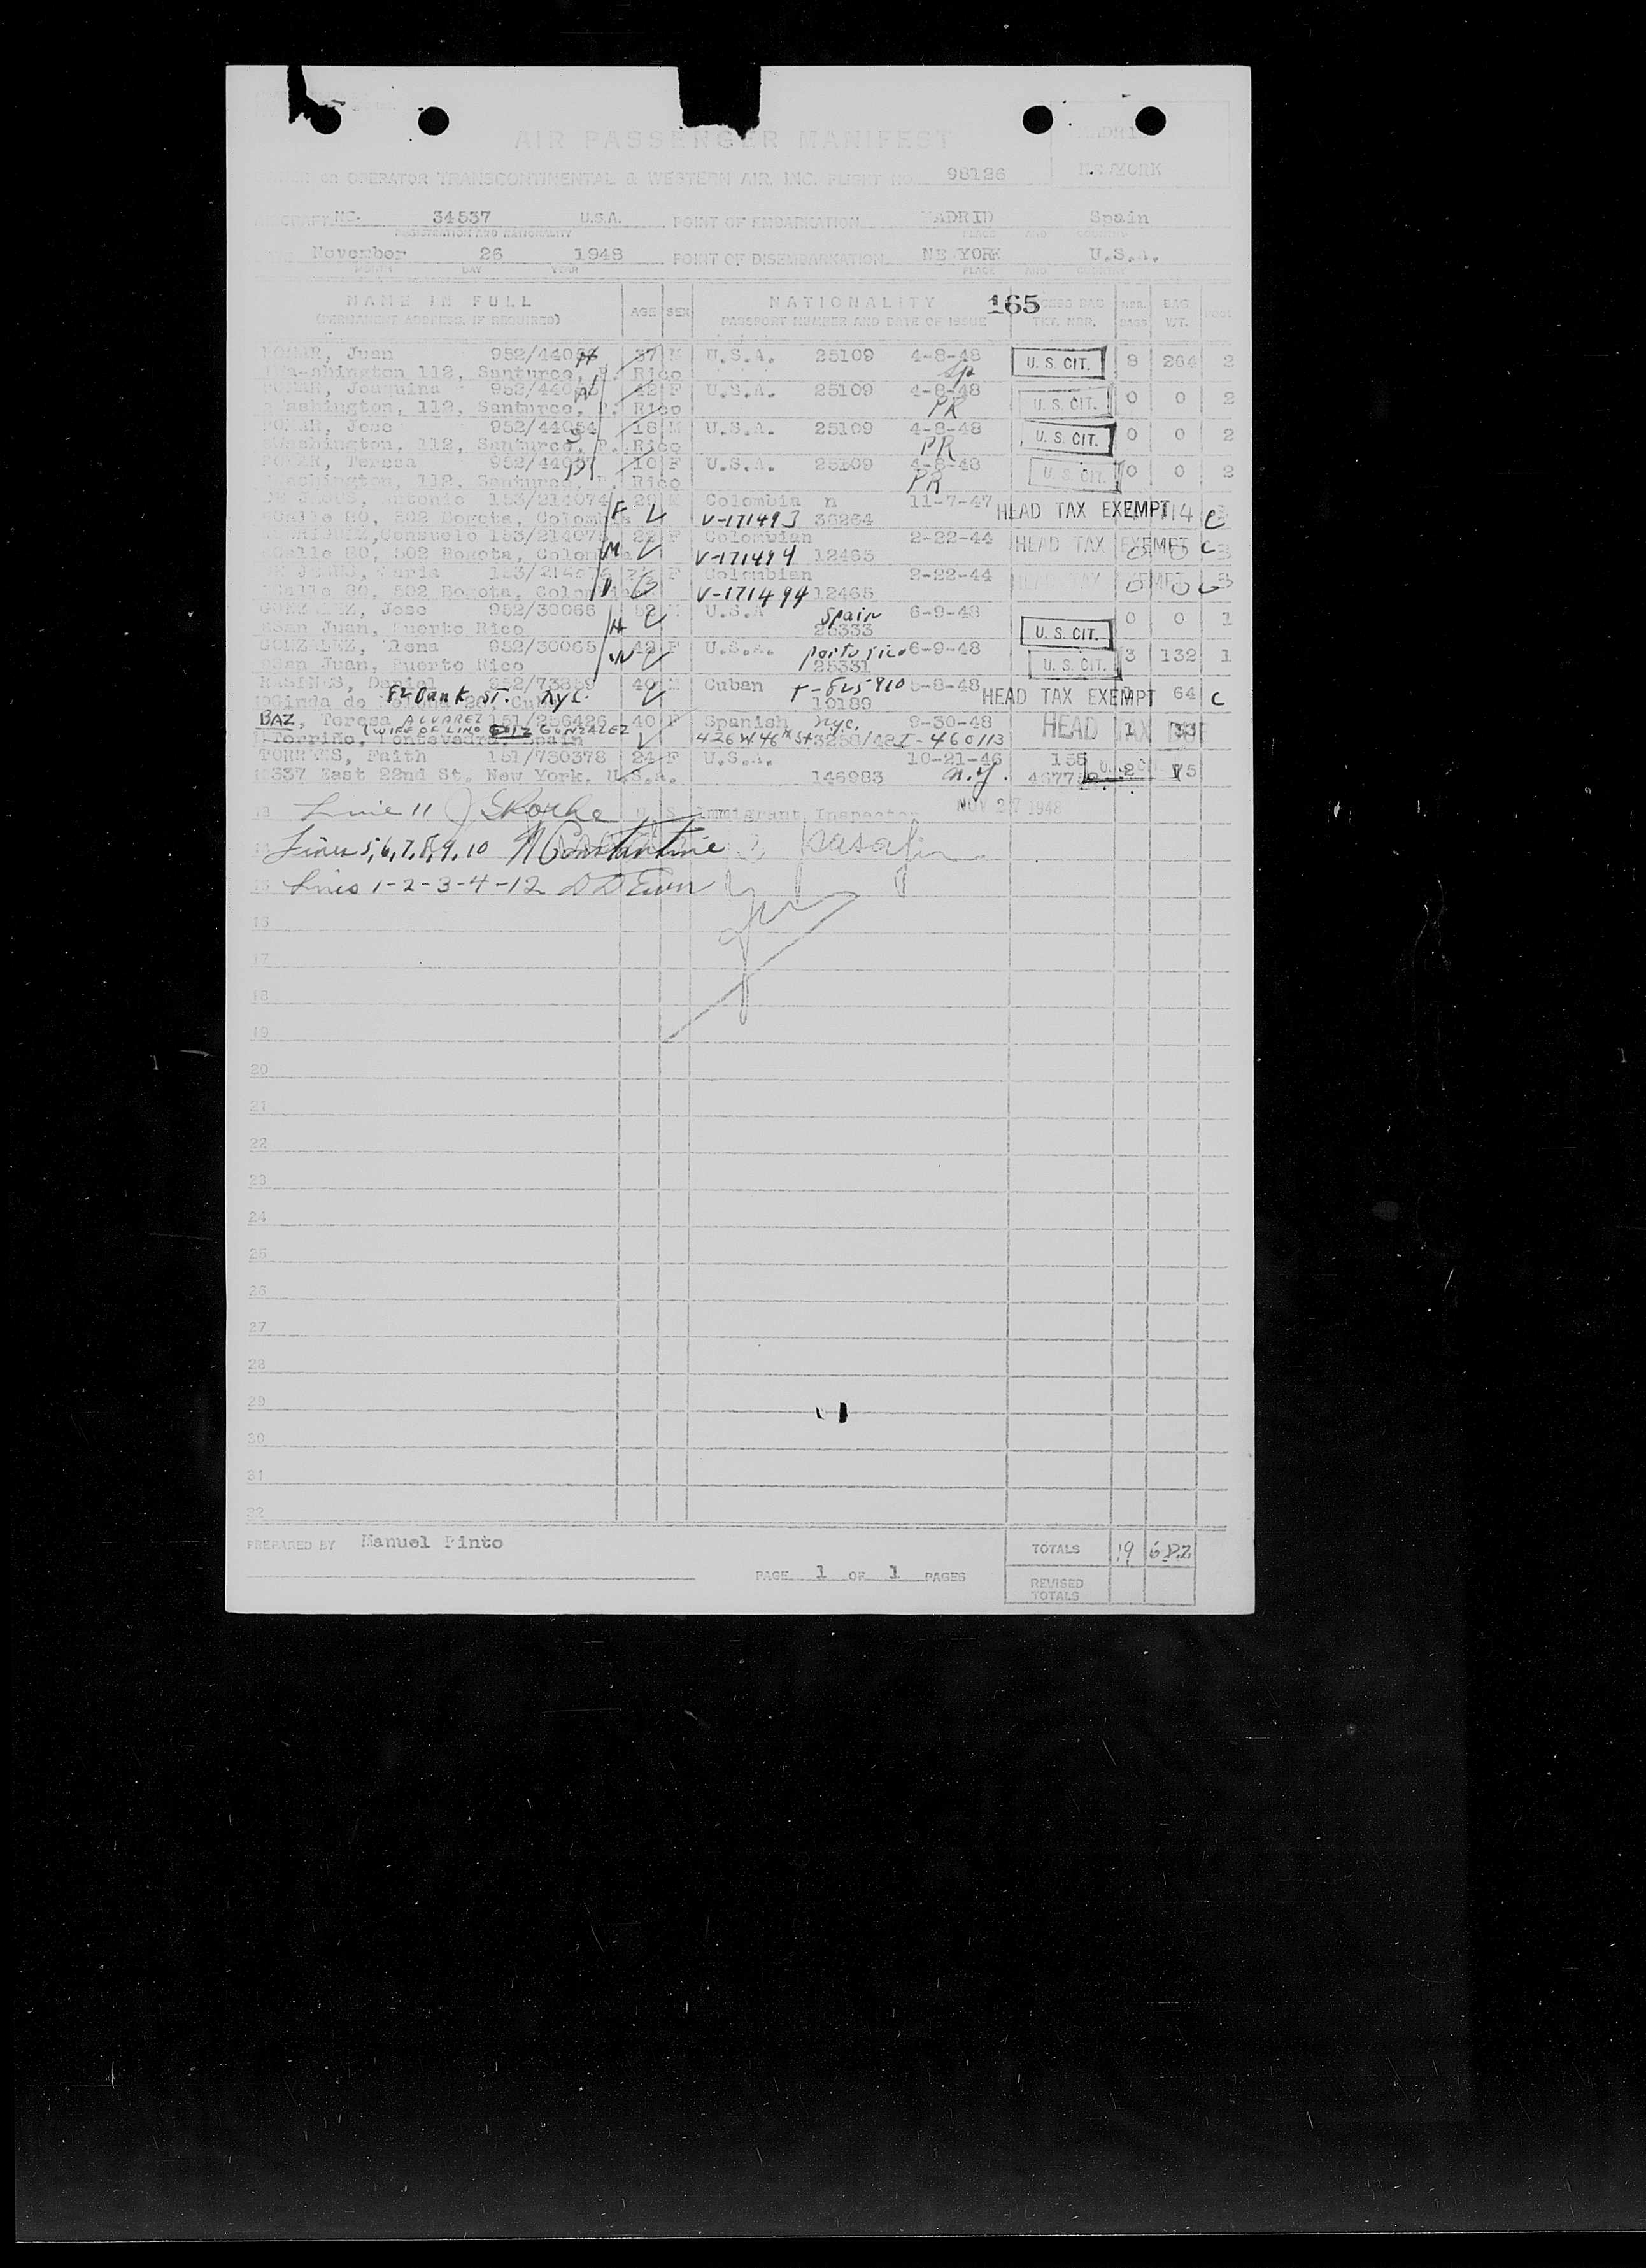 AIR PASSENGER MANIFEST
MADRID
NEW YORK
OR OPERATOR TRANSCONTINENTAL & WESTERN AIR, INC. FLIGHT NO. 98126
AIRCRAFT NC. 34537 U.S.A. POINT OF EMBARKATION MADRID Spain
REGISTRATION AND NATIONALITY PLACE AND COUNTRY
November 26 1948 POINT OF DISEMBARKATION NEW YORK U.S.A.
MONTH DAY YEAR PLACE AND COUNTRY
NAME IN FULL AGE SEX NATIONALITY 165 BAG
(PERMANENT ADDRESS, IF REQUIRED) PASSPORT NUMBER AND DATE OF ISSUE TKT. NBR. WT.
Juan 37 M U.S.A. 25109 4-8-48 U. S. CIT. 8 264 2
Washington 112, Santurce, P. Rico Sp
Joaquina 42 F U.S.A. 25109 4-8-48 U. S. CIT. 0 0 2
Washington, 112, Santurce, P. Rico PR
Jose 952/44054 18 M U.S.A. 25109 4-8-48 U. S. CIT. 0 0 2
Washington, 112, Santurce, P. Rico PR
Teresa 10 F U.S.A. 25109 4-8-48 U. S. CIT. 0 0 2
Washington, 112, Santurce, P. Rico PR
DE JESUS, Antonio 153/214074 29 M Colombian 11-7-47 HEAD TAX EXEMPT 14 C
Calle 80, 502 Bogota, Colombia V-171493 36264
RODRIGUEZ, Consuelo 153/214075 22 F Colombian 2-22-44 HEAD TAX EXEMPT 0 0 C
Calle 80, 502 Bogota, Colombia V-171494 12465
JESUS, Maria F Colombian 2-22-44 HEAD TAX EXEMPT 0 0 C
Calle 80, 502 Bogota, Colombia V-171494 12465
GONZALEZ, Jose 952/30066 52 M U.S.A Spain 6-9-48 0 0 1
San Juan, Puerto Rico 25333 U. S. CIT.
GONZALEZ, Elena 952/30065 42 F U.S.A. 6-9-48 3 132 1
San Juan, Puerto Rico 25331 U. S. CIT.
Daniel 952/73859 40 M Cuban T-825910 HEAD TAX EXEMPT 64 C
82 Bank ST. NYC. Cuba 10189
BAZ, Teresa ALVAREZ 151/256426 40 F Spanish NYC. 9-30-48 HEAD TAX 1 33
(WIFE OF LINO GONZALEZ
Torriño, Pontevedra, Spain 426 W 46th St 3250/48 I-460113
TORRENS, Faith 151/730378 24 F U.S.A. 10-21-46 155 2 75
337 East 22nd St. New York, U.S.A. 146983 N.Y.
13 Line 11 U. S. Immigrant Inspector NOV 27 1948
14 Lines 5, 6, 7, 8, 9, 10 N Constantine
15 Lines 1-2-3-4-12
16
17
18
19
20
21
22
23
24
25
26
27
28
29
30
31
32
PREPARED BY Manuel Pinto TOTALS 19 682
PAGE 1 OF 1 PAGES REVISED TOTALS